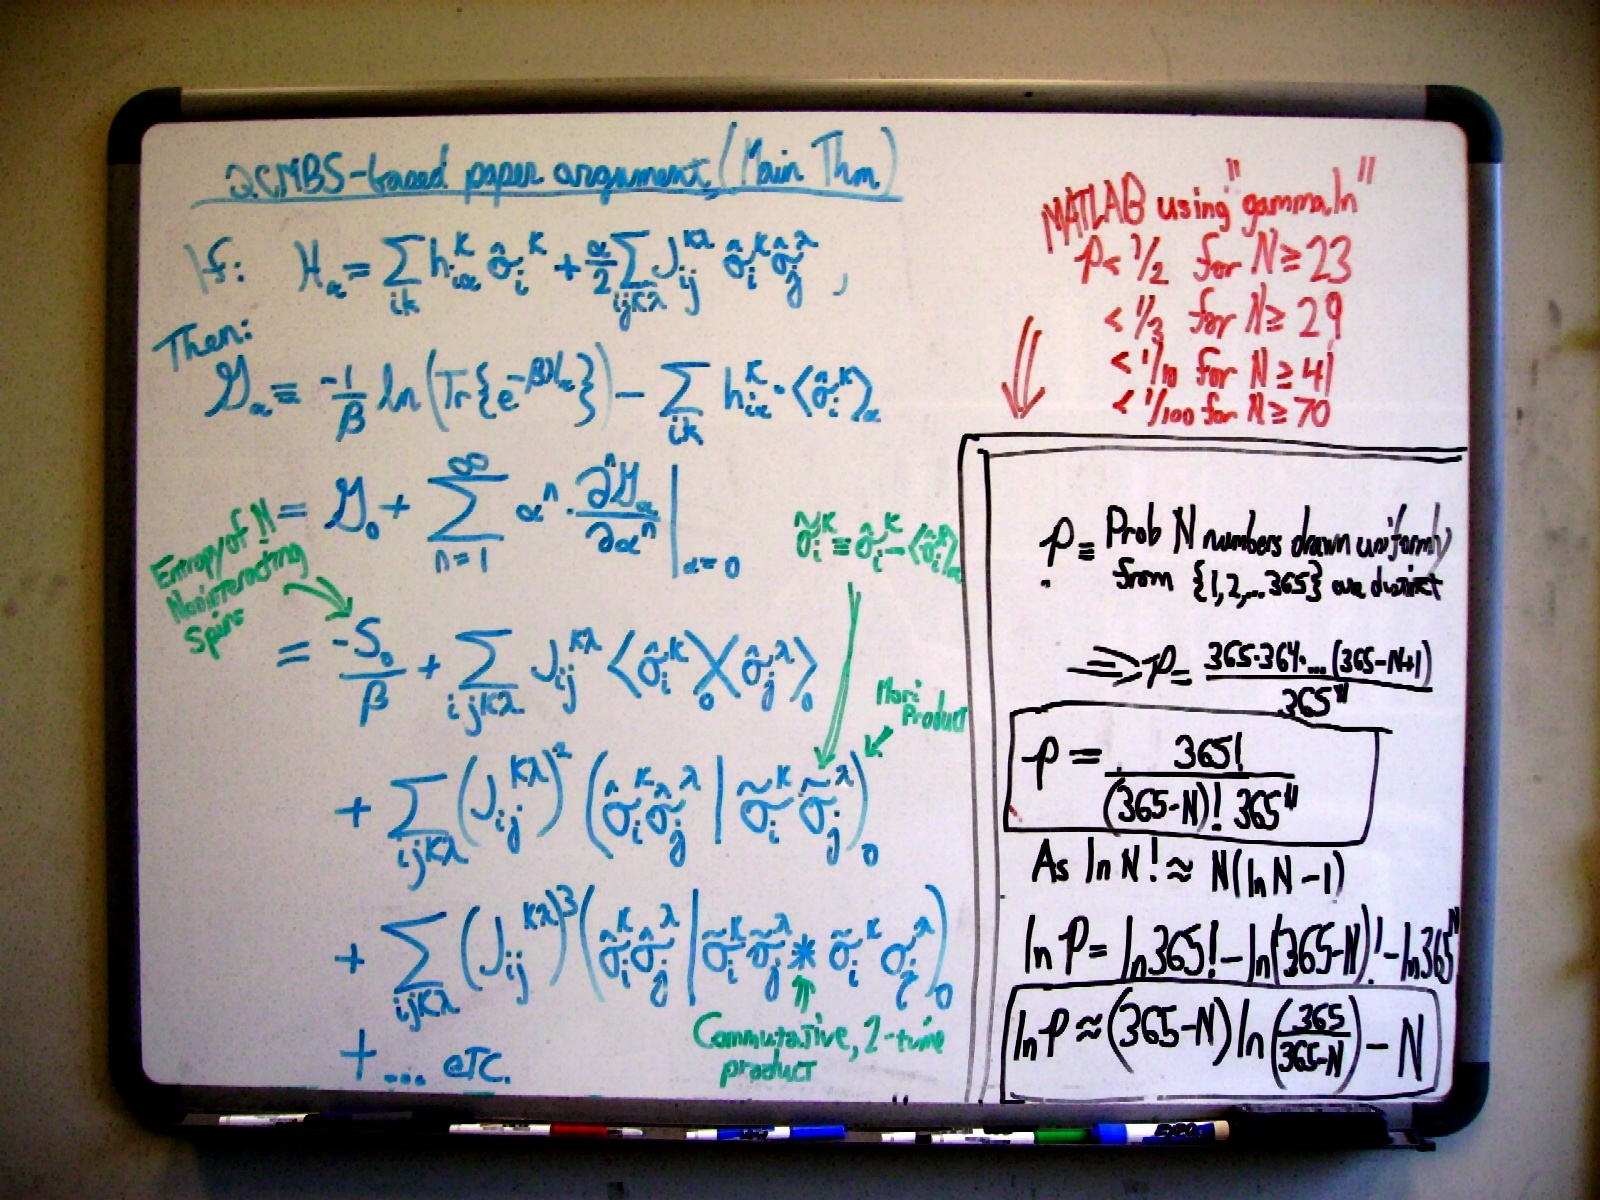 QCMBS-based paper argument, (Main Thm)
If: H_α = Σ_{ik} h_{iα}^κ σ̂_i^κ + α/2 Σ_{ijκλ} J_{ij}^{κλ} σ̂_i^κ σ̂_j^λ ,
Then:
G_α ≡ -1/β ln(Tr{e^{-βH_α}}) - Σ_{ik} h_{iα}^κ · ⟨σ̂_i^κ⟩_α
= G_0 + Σ_{n=1}^∞ α^n · ∂^n G_α / ∂α^n |_{α=0}
Entropy of N
Noninteracting
Spins
σ̃_i^κ ≡ σ̂_i^κ - ⟨σ̂_i^κ⟩_α
= -S_0/β + Σ_{ijκλ} J_{ij}^{κλ} ⟨σ̂_i^κ⟩_0 ⟨σ̂_j^λ⟩_0
Mori
Product
+ Σ_{ijκλ} (J_{ij}^{κλ})^2 (σ̂_i^κ σ̂_j^λ | σ̃_i^κ σ̃_j^λ)_0
+ Σ_{ijκλ} (J_{ij}^{κλ})^3 (σ̂_i^κ σ̂_j^λ | σ̃_i^κ σ̃_j^λ * σ̃_i^κ σ_j^λ)_0
Commutative, 2-time
product
+ ... etc.
MATLAB using "gammaln"
P < 1/2 for N ≥ 23
< 1/3 for N ≥ 29
< 1/10 for N ≥ 41
< 1/100 for N ≥ 70
P ≡ Prob N numbers drawn uniformly
from {1,2,...365} are distinct
⇒ P = 365·364·...(365-N+1) / 365^N
P = 365! / (365-N)! 365^N
As ln N! ≈ N(ln N - 1)
ln P = ln 365! - ln(365-N)! - ln 365^N
ln P ≈ (365-N) ln(365/(365-N)) - N
EXPO